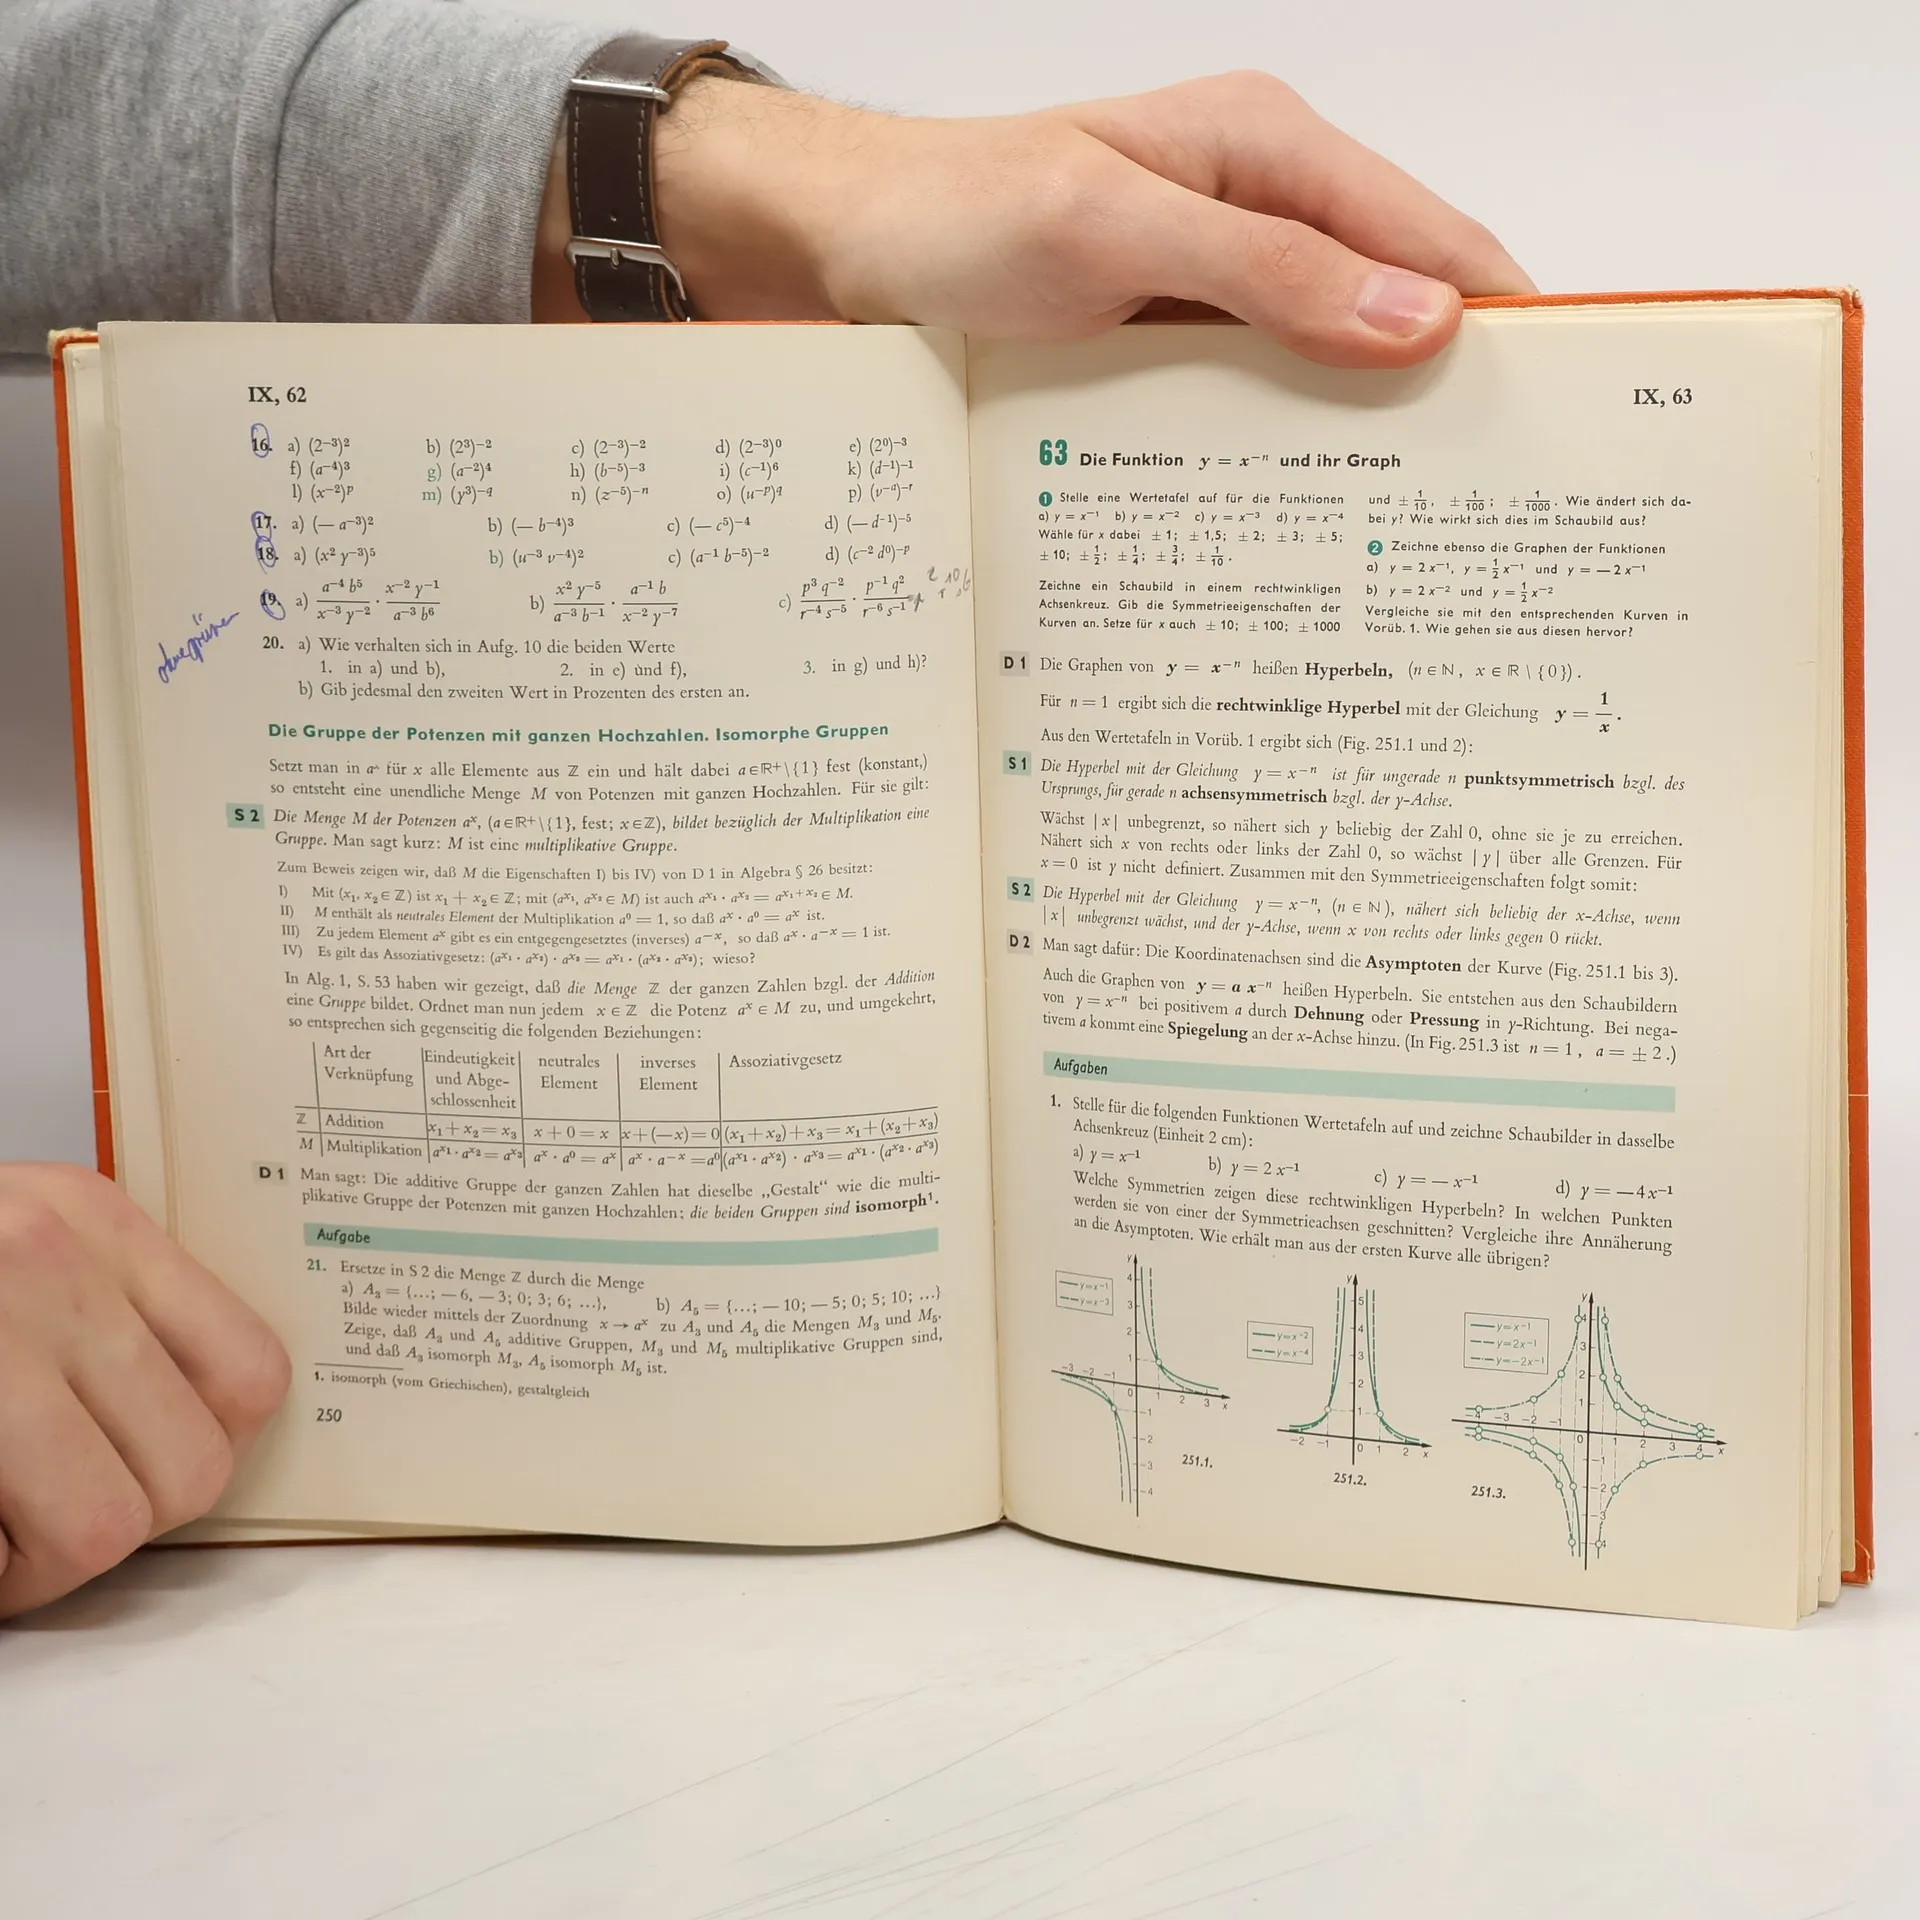 IX, 62
16. a) (2⁻³)² b) (2³)⁻² c) (2⁻³)⁻² d) (2⁻³)⁰ e) (2⁰)⁻³
f) (a⁻⁴)³ g) (a⁻²)⁴ h) (b⁻⁵)⁻³ i) (c⁻¹)⁶ k) (d⁻¹)⁻¹
l) (x⁻²)ᵖ m) (y³)⁻q n) (z⁻⁵)⁻ⁿ o) (u⁻ᵖ)q p) (v⁻ᵃ)⁻ʳ
17. a) (— a⁻³)² b) (— b⁻⁴)³ c) (— c⁵)⁻⁴ d) (— d⁻¹)⁻⁵
18. a) (x² y⁻³)⁵ b) (u⁻³ v⁻⁴)² c) (a⁻¹ b⁻⁵)⁻² d) (c⁻² d⁰)⁻ᵖ
19. a) a⁻⁴ b⁵ / x⁻³ y⁻² · x⁻² y⁻¹ / a⁻³ b⁶ b) x² y⁻⁵ / a⁻³ b⁻¹ · a⁻¹ b / x⁻² y⁻⁷ c) p³ q⁻² / r⁻⁴ s⁻⁵ · p⁻¹ q² / r⁻⁶ s⁻¹
ohne grünen
20. a) Wie verhalten sich in Aufg. 10 die beiden Werte
1. in a) und b), 2. in e) und f), 3. in g) und h)?
b) Gib jedesmal den zweiten Wert in Prozenten des ersten an.
Die Gruppe der Potenzen mit ganzen Hochzahlen. Isomorphe Gruppen
Setzt man in aˣ für x alle Elemente aus ℤ ein und hält dabei a∈ℝ⁺\{1} fest (konstant,)
so entsteht eine unendliche Menge M von Potenzen mit ganzen Hochzahlen. Für sie gilt:
S 2 Die Menge M der Potenzen aˣ, (a∈ℝ⁺\{1}, fest; x∈ℤ), bildet bezüglich der Multiplikation eine
Gruppe. Man sagt kurz: M ist eine multiplikative Gruppe.
Zum Beweis zeigen wir, daß M die Eigenschaften I) bis IV) von D 1 in Algebra § 26 besitzt:
I) Mit (x₁, x₂ ∈ ℤ) ist x₁ + x₂ ∈ ℤ; mit (aˣ¹, aˣ² ∈ M) ist auch aˣ¹ · aˣ² = aˣ¹⁺ˣ² ∈ M.
II) M enthält als neutrales Element der Multiplikation a⁰ = 1, so daß aˣ · a⁰ = aˣ ist.
III) Zu jedem Element aˣ gibt es ein entgegengesetztes (inverses) a⁻ˣ, so daß aˣ · a⁻ˣ = 1 ist.
IV) Es gilt das Assoziativgesetz: (aˣ¹ · aˣ²) · aˣ³ = aˣ¹ · (aˣ² · aˣ³); wieso?
In Alg. 1, S. 53 haben wir gezeigt, daß die Menge ℤ der ganzen Zahlen bzgl. der Addition
eine Gruppe bildet. Ordnet man nun jedem x ∈ ℤ die Potenz aˣ ∈ M zu, und umgekehrt,
so entsprechen sich gegenseitig die folgenden Beziehungen:
Art der Eindeutigkeit neutrales inverses Assoziativgesetz
Verknüpfung und Abge- Element Element
schlossenheit
ℤ Addition x₁ + x₂ = x₃ x + 0 = x x + (—x) = 0 (x₁ + x₂) + x₃ = x₁ + (x₂ + x₃)
M Multiplikation aˣ¹ · aˣ² = aˣ³ aˣ · a⁰ = aˣ aˣ · a⁻ˣ = a⁰ (aˣ¹ · aˣ²) · aˣ³ = aˣ¹ · (aˣ² · aˣ³)
D 1 Man sagt: Die additive Gruppe der ganzen Zahlen hat dieselbe „Gestalt“ wie die multi-
plikative Gruppe der Potenzen mit ganzen Hochzahlen; die beiden Gruppen sind isomorph¹.
Aufgabe
21. Ersetze in S 2 die Menge ℤ durch die Menge
a) A₃ = {...; — 6, — 3; 0; 3; 6; ...}, b) A₅ = {...; — 10; — 5; 0; 5; 10; ...}
Bilde wieder mittels der Zuordnung x → aˣ zu A₃ und A₅ die Mengen M₃ und M₅.
Zeige, daß A₃ und A₅ additive Gruppen, M₃ und M₅ multiplikative Gruppen sind,
und daß A₃ isomorph M₃, A₅ isomorph M₅ ist.
1. isomorph (vom Griechischen), gestaltgleich
250
IX, 63
63 Die Funktion y = x⁻ⁿ und ihr Graph
1 Stelle eine Wertetafel auf für die Funktionen
a) y = x⁻¹ b) y = x⁻² c) y = x⁻³ d) y = x⁻⁴
Wähle für x dabei ± 1; ± 1,5; ± 2; ± 3; ± 5;
± 10; ± 1/2; ± 1/4; ± 3/4; ± 1/10.
Zeichne ein Schaubild in einem rechtwinkligen
Achsenkreuz. Gib die Symmetrieeigenschaften der
Kurven an. Setze für x auch ± 10; ± 100; ± 1000
und ± 1/10, ± 1/100; ± 1/1000. Wie ändert sich da-
bei y? Wie wirkt sich dies im Schaubild aus?
2 Zeichne ebenso die Graphen der Funktionen
a) y = 2 x⁻¹, y = 1/2 x⁻¹ und y = — 2 x⁻¹
b) y = 2 x⁻² und y = 1/2 x⁻²
Vergleiche sie mit den entsprechenden Kurven in
Vorüb. 1. Wie gehen sie aus diesen hervor?
D 1 Die Graphen von y = x⁻ⁿ heißen Hyperbeln, (n ∈ ℕ, x ∈ ℝ \ {0}).
Für n = 1 ergibt sich die rechtwinklige Hyperbel mit der Gleichung y = 1/x.
Aus den Wertetafeln in Vorüb. 1 ergibt sich (Fig. 251.1 und 2):
S 1 Die Hyperbel mit der Gleichung y = x⁻ⁿ ist für ungerade n punktsymmetrisch bzgl. des
Ursprungs, für gerade n achsensymmetrisch bzgl. der y-Achse.
Wächst |x| unbegrenzt, so nähert sich y beliebig der Zahl 0, ohne sie je zu erreichen.
Nähert sich x von rechts oder links der Zahl 0, so wächst |y| über alle Grenzen. Für
x = 0 ist y nicht definiert. Zusammen mit den Symmetrieeigenschaften folgt somit:
S 2 Die Hyperbel mit der Gleichung y = x⁻ⁿ, (n ∈ ℕ), nähert sich beliebig der x-Achse, wenn
|x| unbegrenzt wächst, und der y-Achse, wenn x von rechts oder links gegen 0 rückt.
D 2 Man sagt dafür: Die Koordinatenachsen sind die Asymptoten der Kurve (Fig. 251.1 bis 3).
Auch die Graphen von y = a x⁻ⁿ heißen Hyperbeln. Sie entstehen aus den Schaubildern
von y = x⁻ⁿ bei positivem a durch Dehnung oder Pressung in y-Richtung. Bei nega-
tivem a kommt eine Spiegelung an der x-Achse hinzu. (In Fig. 251.3 ist n = 1, a = ± 2.)
Aufgaben
1. Stelle für die folgenden Funktionen Wertetafeln auf und zeichne Schaubilder in dasselbe
Achsenkreuz (Einheit 2 cm):
a) y = x⁻¹ b) y = 2 x⁻¹ c) y = — x⁻¹ d) y = — 4x⁻¹
Welche Symmetrien zeigen diese rechtwinkligen Hyperbeln? In welchen Punkten
werden sie von einer der Symmetrieachsen geschnitten? Vergleiche ihre Annäherung
an die Asymptoten. Wie erhält man aus der ersten Kurve alle übrigen?
y=x⁻¹
y=x⁻³
y 4 3 2 1
−3 −2 −1 0 1 2 3 x
−1 −2 −3 −4
251.1.
y=x⁻²
y=x⁻⁴
y 5 4 3 2 1
−2 −1 0 1 2 x
251.2.
y=x⁻¹
y=2x⁻¹
y=−2x⁻¹
y 4 3 2 1
−4 −3 −2 −1 0 1 2 3 4 x
−1 −2 −3 −4
251.3.